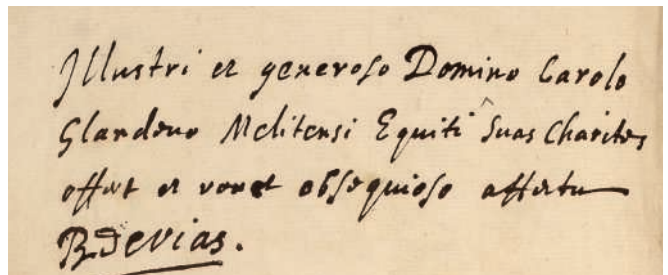 Illustri et generoso Domino Carolo
Glandeuo Melitensi Equiti Suas Charites
offert et vouet obsequioso affectu
B. de vias.